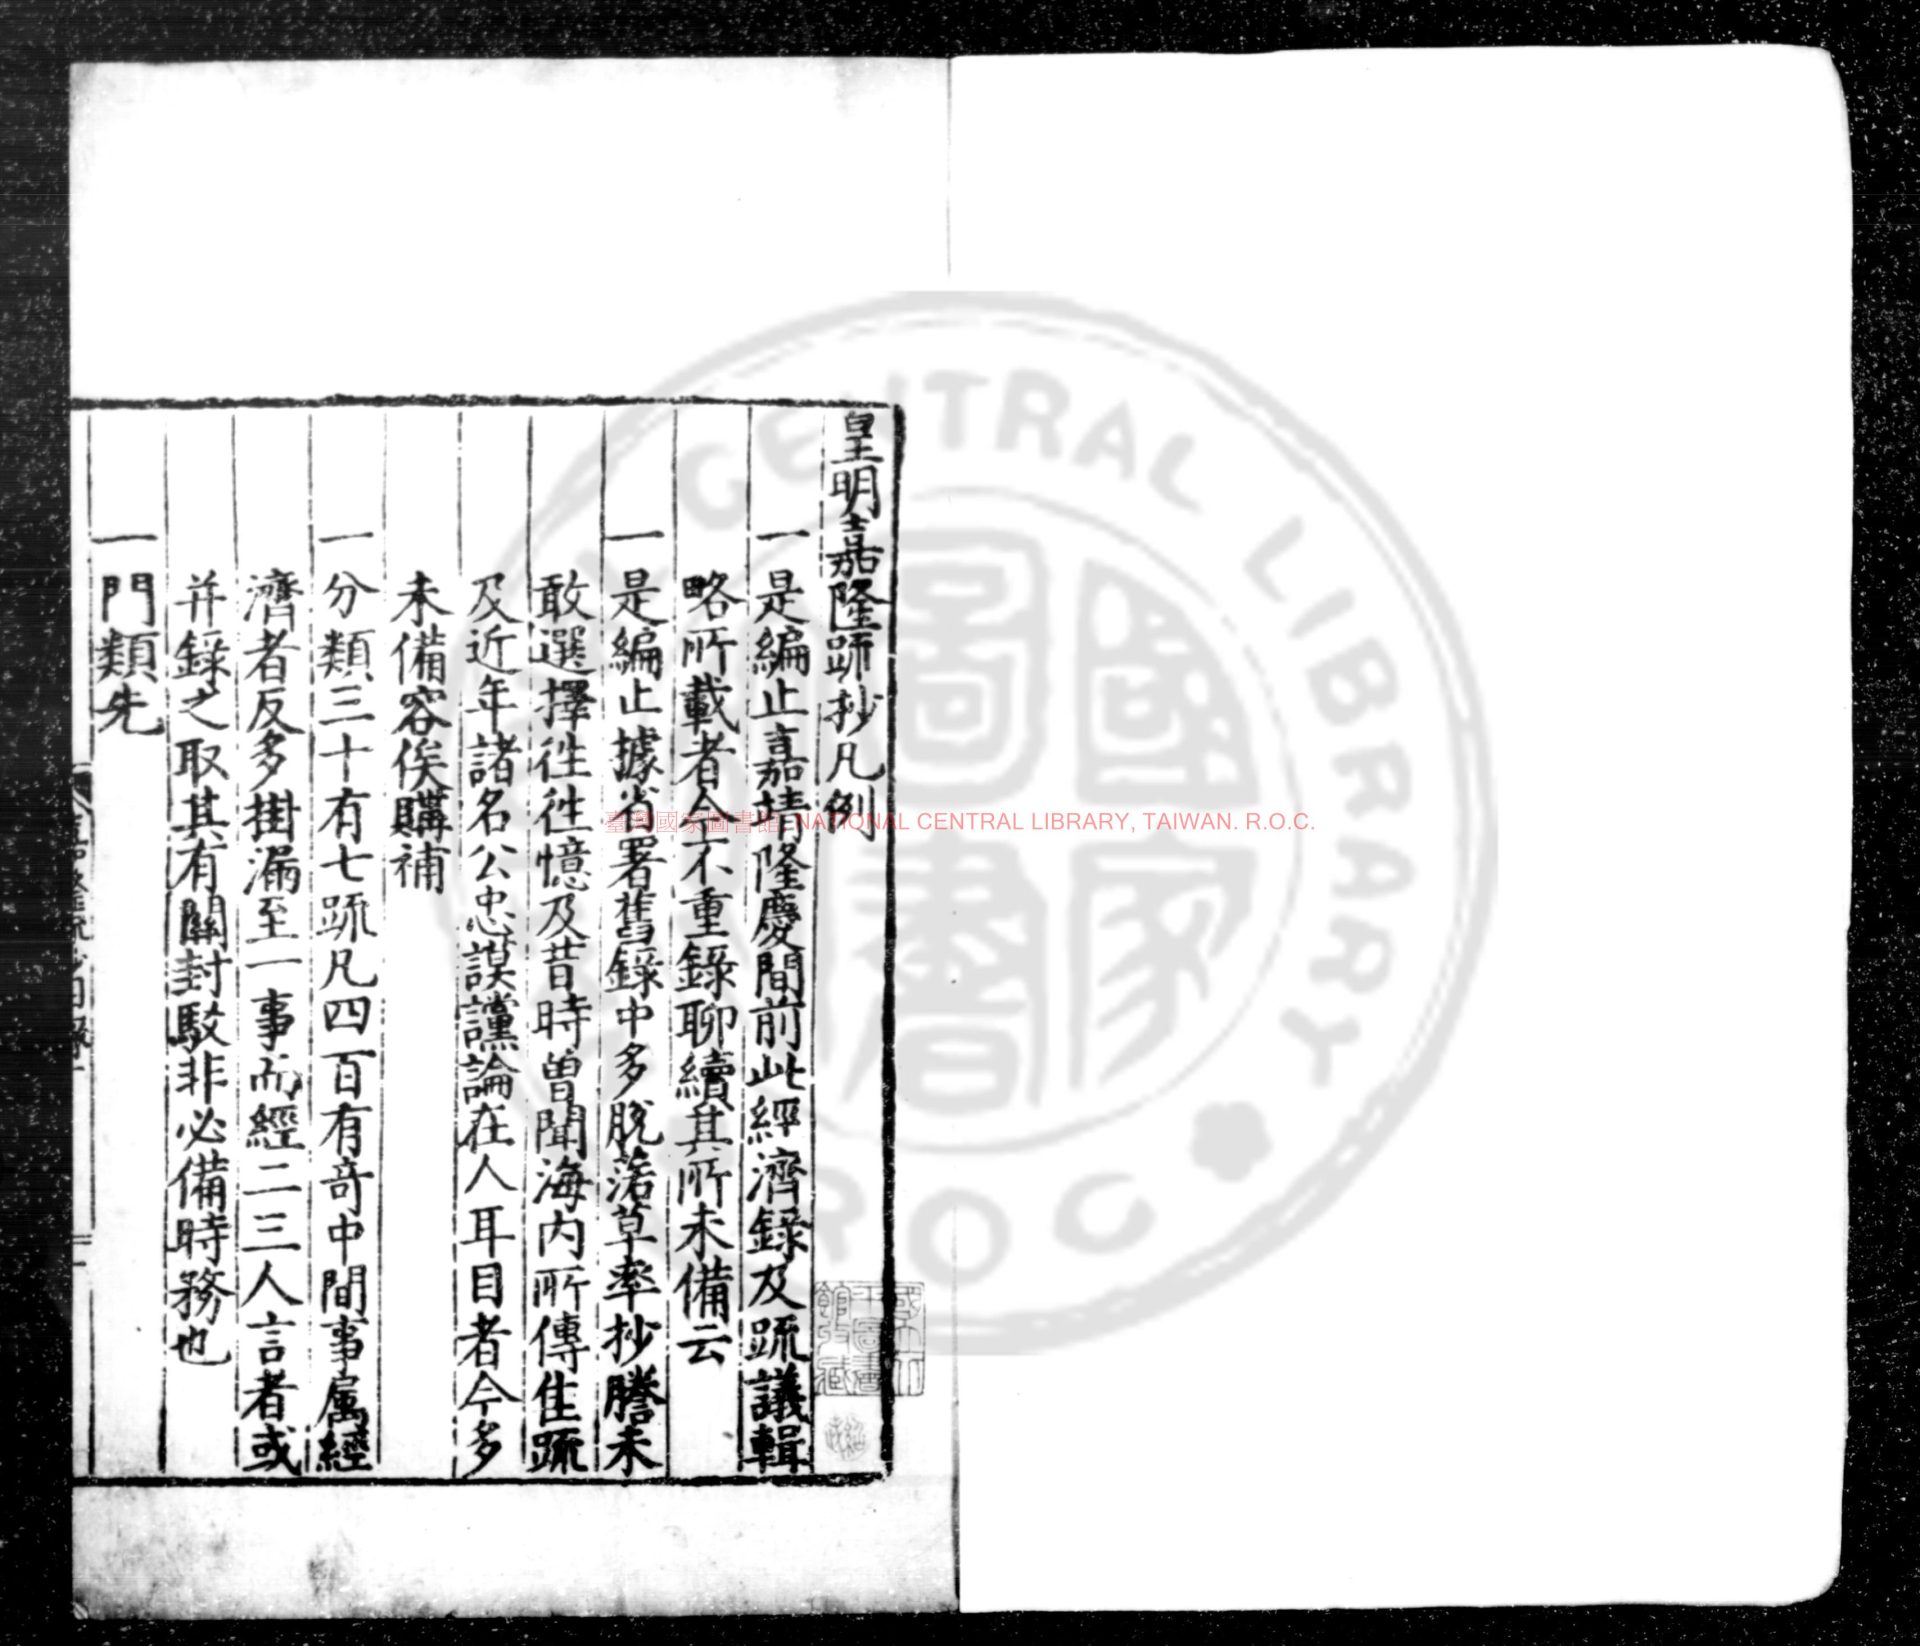 皇明嘉隆疏抄凡例
一是編止嘉靖隆慶間前此經濟錄及疏議輯
略所載者今不重錄聊續其所未備云
一是編止據省署舊錄中多脫落草率抄謄未
敢選擇徃徃憶及昔時曾聞海內所傳佳疏
及近年諸名公忠謨讜論在人耳目者今多
未備容俟購補
一分類三十有七疏凡四百有奇中間事屬經
濟者反多掛漏至一事而經二三人言者或
并錄之取其有關封駁非必備時務也
一門類先
臺灣國家圖書館, NATIONAL CENTRAL LIBRARY, TAIWAN. R.O.C.
CENTRAL LIBRARY
R.O.C
國家圖書